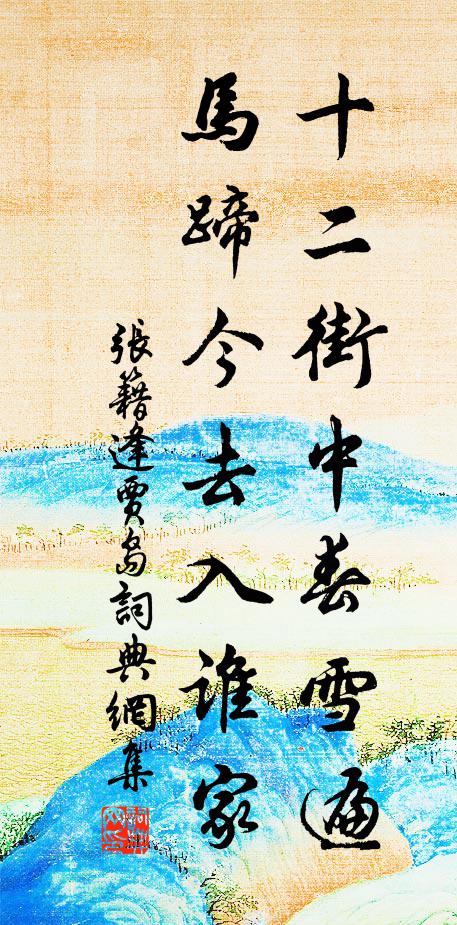 十二街中春雪遍
馬蹄今去入誰家
張籍逢賈島詞典網集